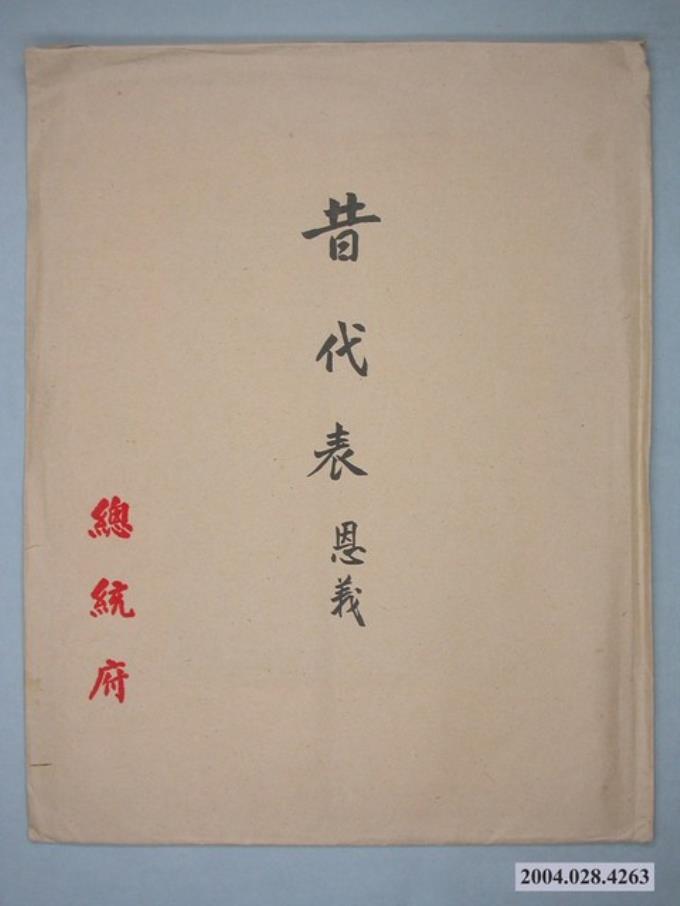 昔代表恩義
總統府
2004.028.4263